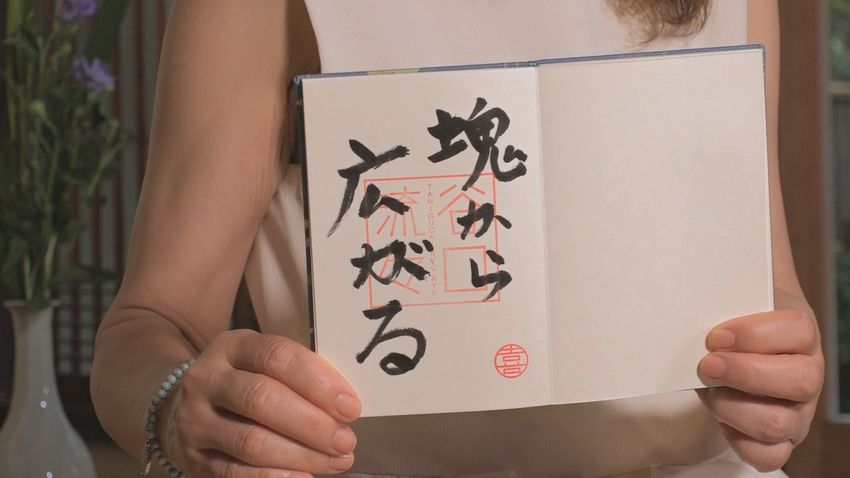 塊から
広がる
谷口
流友
TANIGUCHI RYURYU
喜